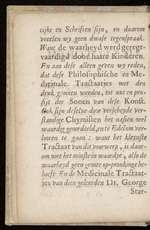 cijke en Schriften sijn, en daarom
vreesen wy geen dwase tegenspraak.
Want de waarheyd werd geregt-
vaardigd door haare Kinderen.
En om dese alleen geven wy reden,
dat dese Philosophische en Me-
dicinale Tractaatjes met den
druk gemeen werden, tot nut en pro-
fijt der Soonen van dese Konst.
Ook sijn deselve door verscheyde ver-
standige Chymisten het naasten wel
waardig geoordeeld, om te Edelom ver-
loren te gaan: want het kleinste
Tractaat van dit voorwerp, is daar-
om niet het minste in waardye, als de
waarheid geen groote op-pronking be-
hoeft: En de Medicinale Tractaat-
jes van den geleerden Dr. George
Star-